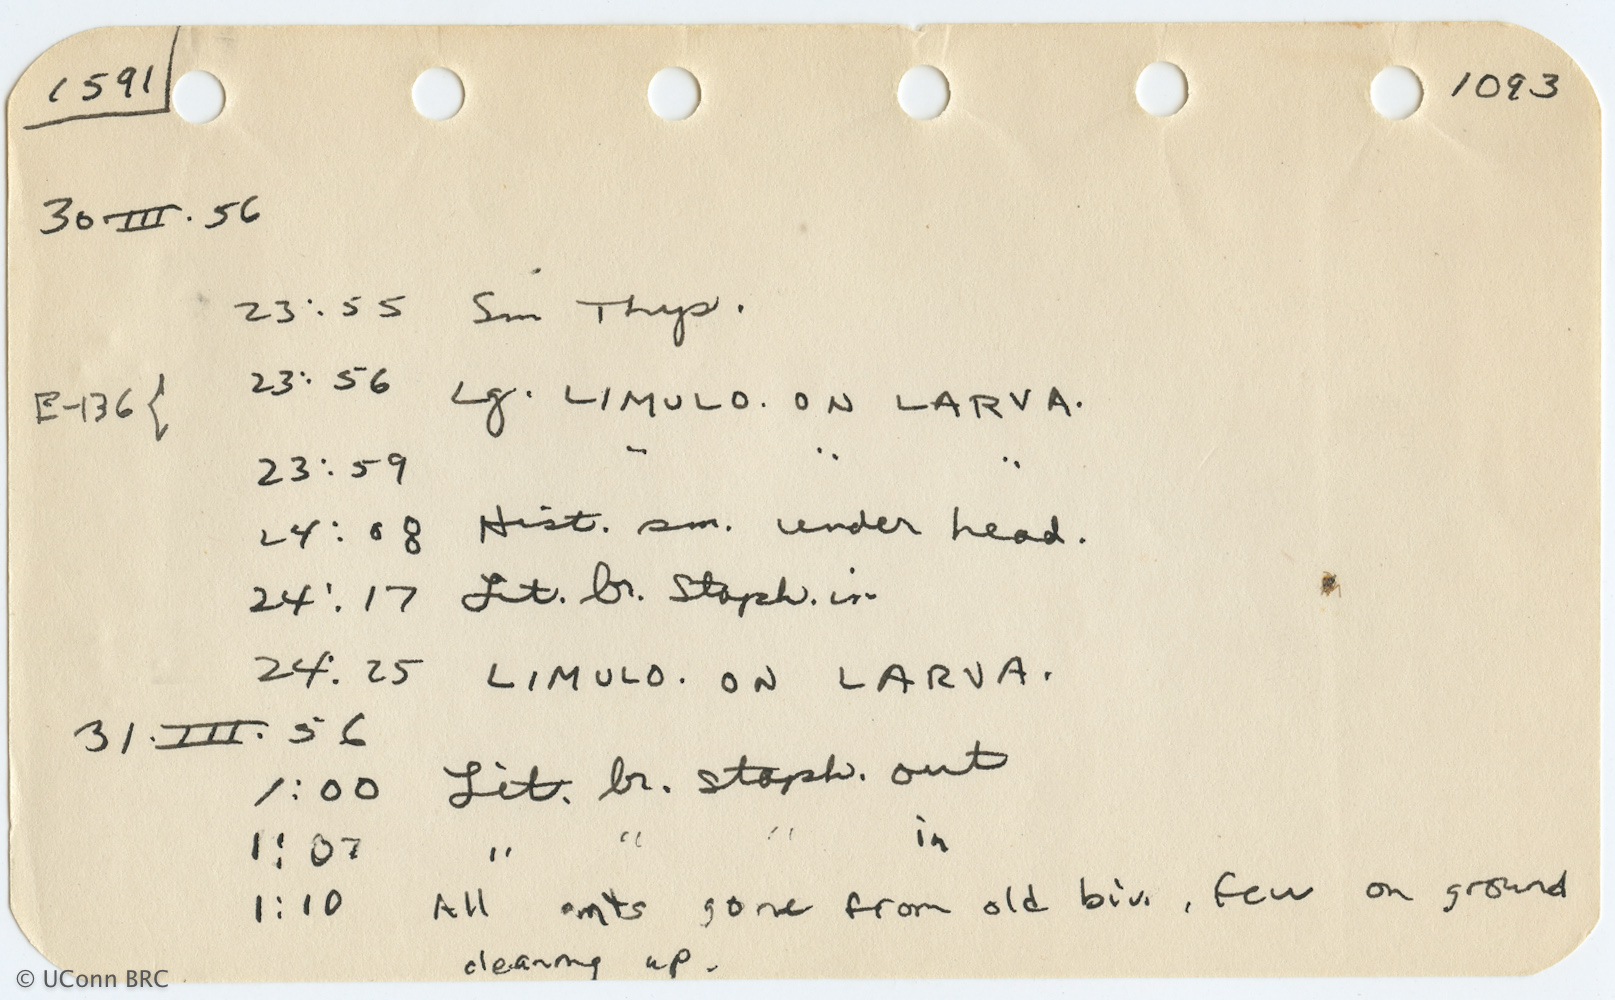 1591
1093
30-III. 56
23:55 Sm Thys.
E-136 {
23:56 Lg. LIMULO. ON LARVA.
23:59 " " "
24:08 Hist. sm. under head.
24:17 Lit. br. Staph. in
24:25 LIMULO. ON LARVA.
31.III. 56
1:00 Lit. br. staph. out
1:07 " " " in
1:10 All ants gone from old biv., few on ground
cleaning up.
© UConn BRC